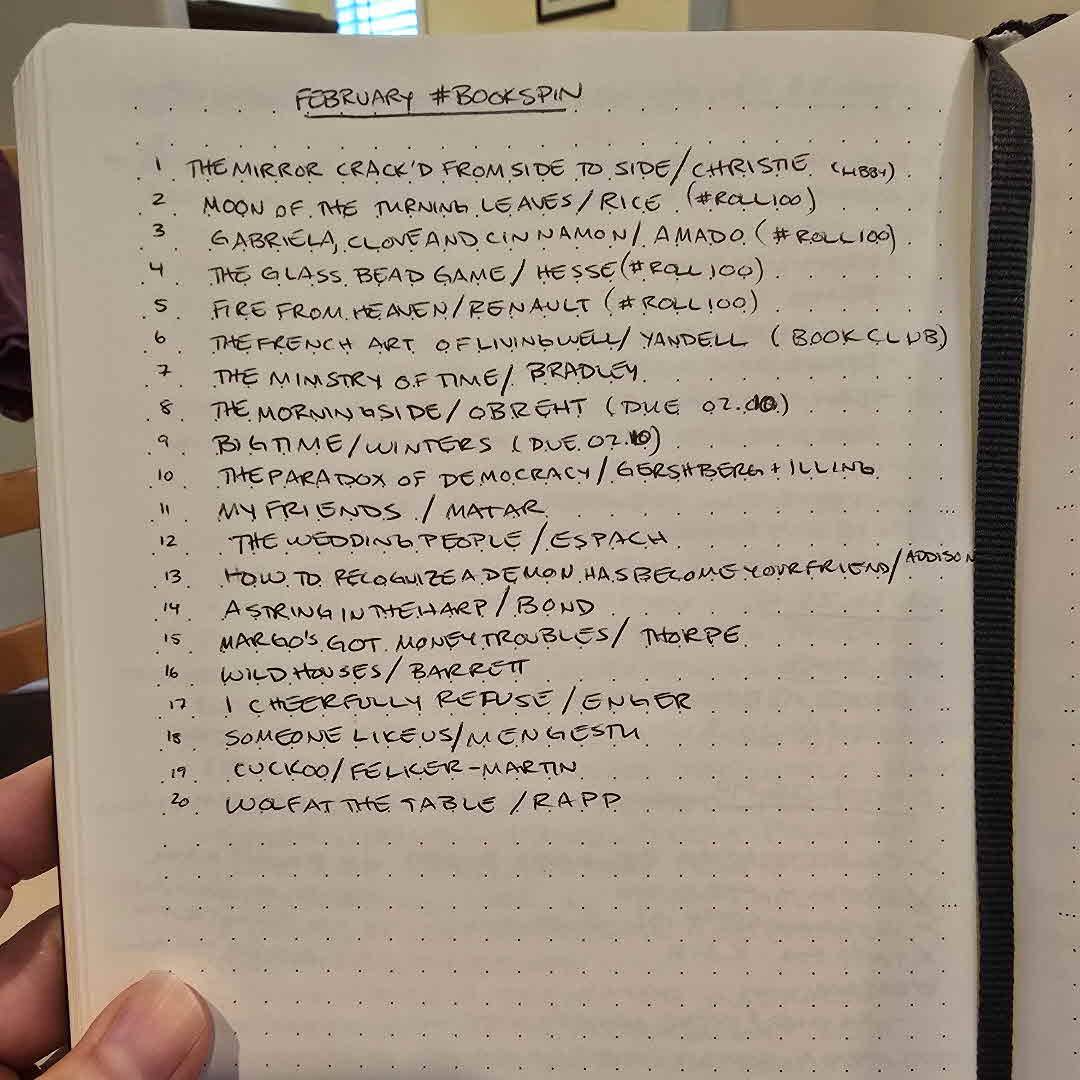 FEBRUARY #BOOKSPIN
1 THE MIRROR CRACK'D FROM SIDE TO SIDE/CHRISTIE (HBBY)
2 MOON OF THE TURNING LEAVES/RICE (#ROLL100)
3 GABRIELA, CLOVE AND CINNAMON/AMADO (#ROLL100)
4 THE GLASS BEAD GAME/HESSE (#ROLL100)
5 FIRE FROM HEAVEN/RENAULT (#ROLL100)
6 THE FRENCH ART OF LIVING WELL/YANDELL (BOOK CLUB)
7 THE MINISTRY OF TIME/BRADLEY
8 THE MORNINGSIDE/OBREHT (DUE 02.)
9 BIG TIME/WINTERS (DUE 02.10)
10 THE PARADOX OF DEMOCRACY/GERSHBERG + ILLING
11 MY FRIENDS/MATAR
12 THE WEDDING PEOPLE/ESPACH
13 HOW TO RECOGNIZE A DEMON HAS BECOME YOUR FRIEND/ADDISON
14 A STRING IN THE HARP/BOND
15 MARGO'S GOT MONEY TROUBLES/THORPE
16 WILD HOUSES/BARRETT
17 I CHEERFULLY REFUSE/ENGER
18 SOMEONE LIKE US/MENGESTU
19 CUCKOO/FELKER-MARTIN
20 WOLF AT THE TABLE/RAPP